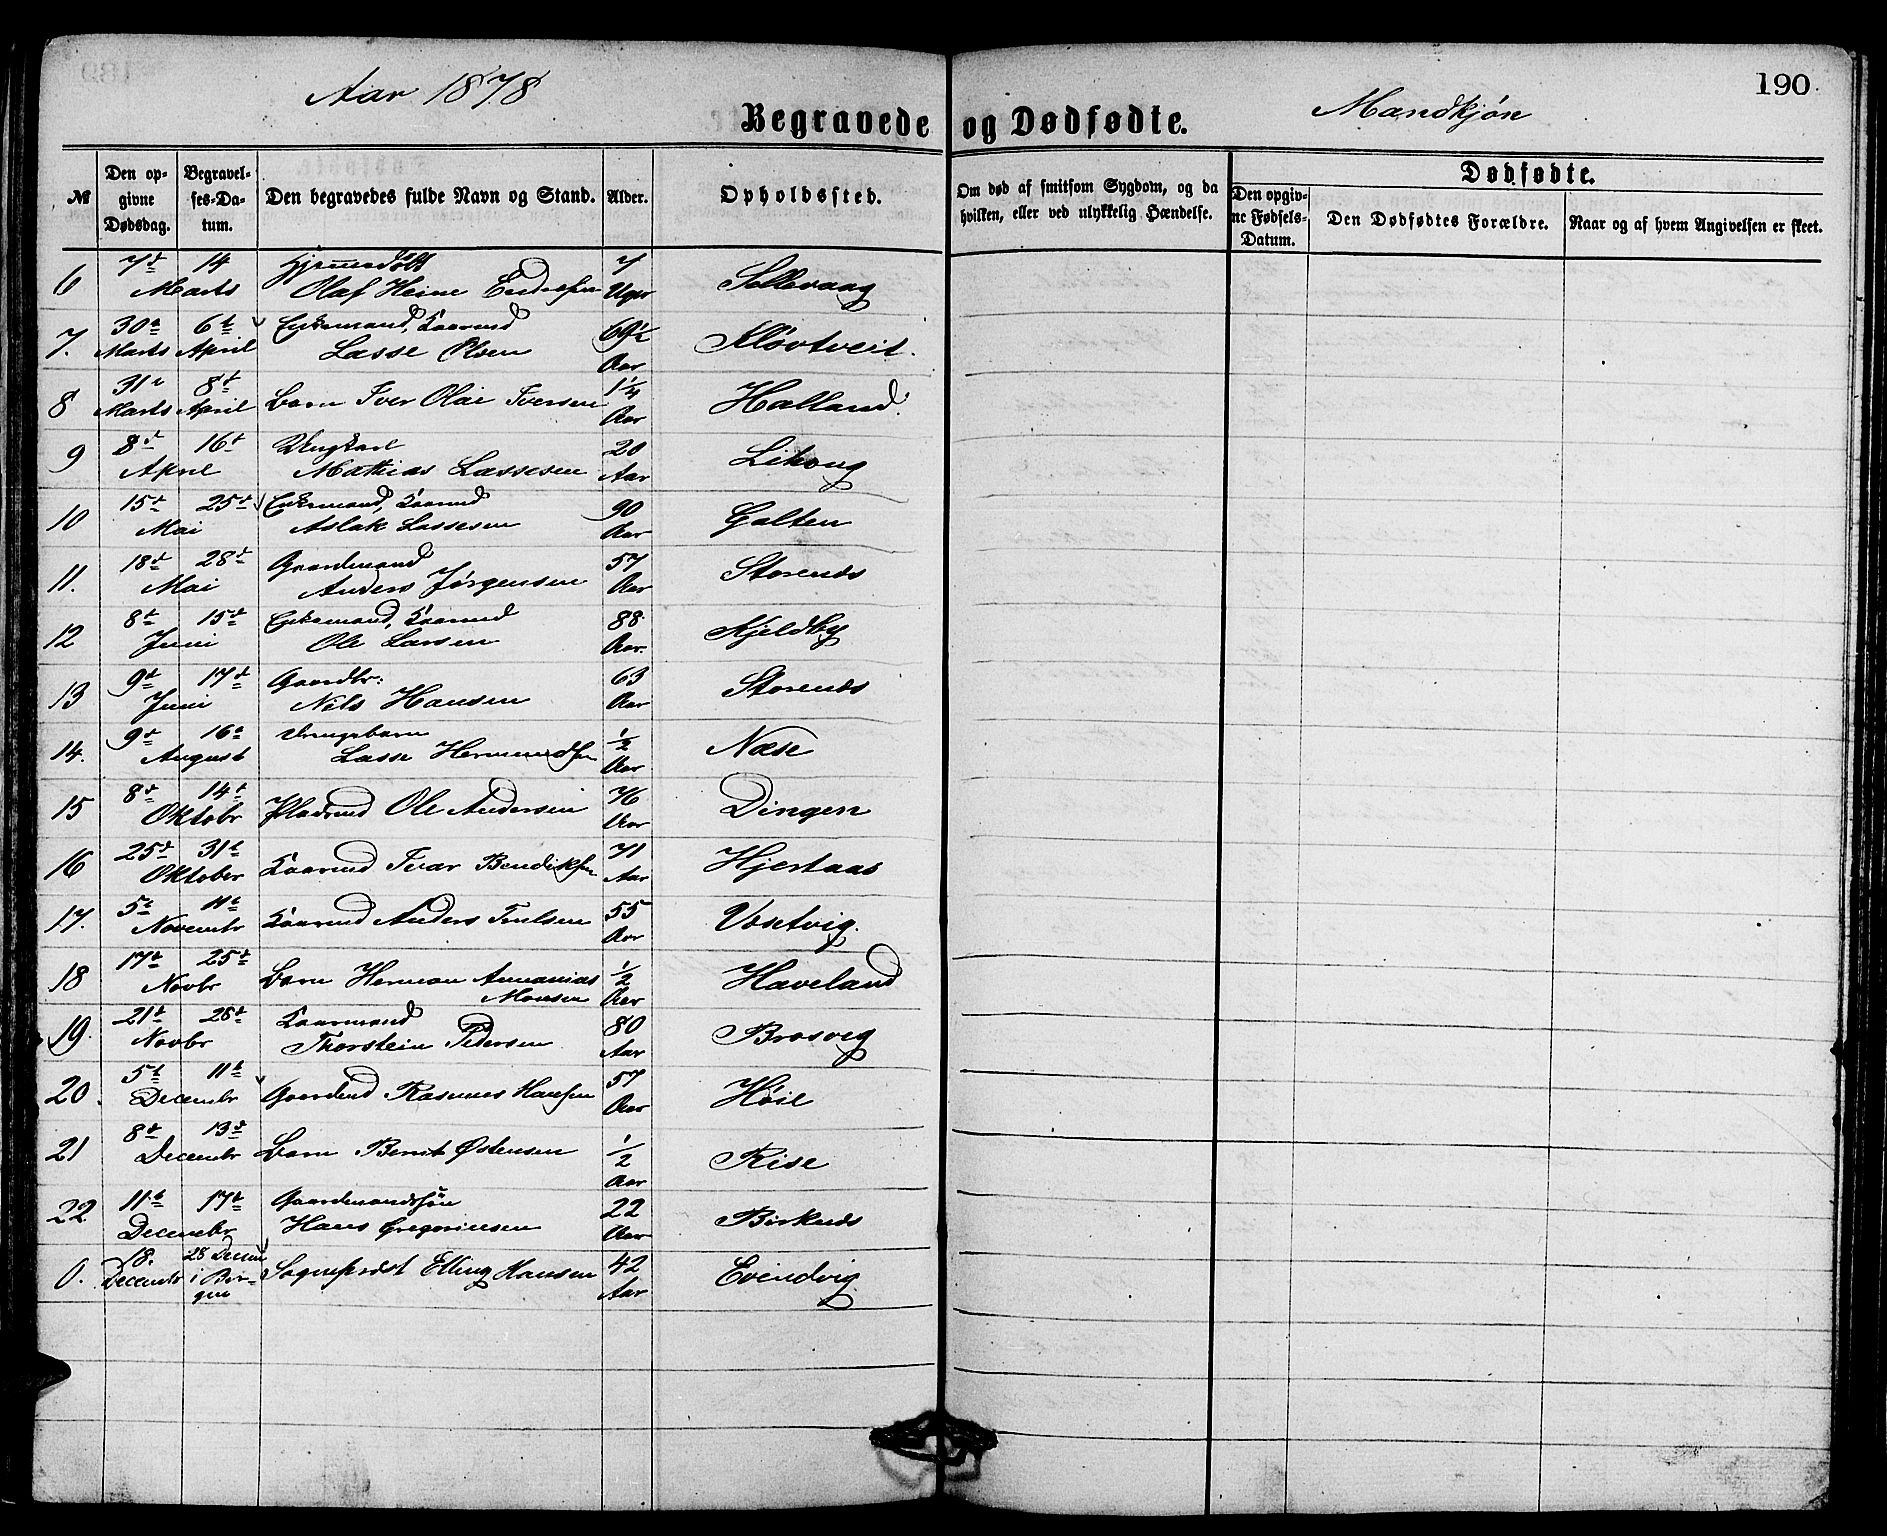 190
Aar 1878
Mandkjøn
Begravede og Dødfødte.
№
Den opgivne Dødsdag.
Begravelses-Datum.
Den begravedes fulde Navn og Stand.
Alder.
Opholdssted.
Om død af smitsom Sygdom, og da hvilken, eller ved ulykkelig Hændelse.
Dødfødte.
Den opgivne Fødsels-Datum.
Den Dødfødtes Forældre.
Naar og af hvem Angivelsen er skeet.
6 7d 14 Marts Hjemmedøbt Olaf Heine Endresen 7 Uger Sellevaag
7. 30te Marts 6te April Enkemand, Kaarmd Lasse Olsen 69½ Aar Kløvtveit.
8 31te Marts 8de April Barn Iver Olai Iversen 1¼ Aar Halland.
9 8d 16d April Ungkarl Mathias Lassesen 20 Aar Lihoug
10 15d 25d Mai Enkemand, Kaarmd Aslak Lassesen 90 Aar Galten
11. 18d 28d Mai Gaardmand Anders Jørgensen 57 Aar Storenæs
12 8d 15d Juni Enkemand, Kaarmd Ole Larsen 88 Aar Kjeldby
13 9d 17d Juni Gaardbr: Nils Hansen 63 Aar Storenæs
14. 9d 16d August Drengebarn Lasse Hermundsen ½ Aar Næse
15 8d 14d Oktobr Pladsmd Ole Andersen 76 Aar Dingen
16 25d 31te Oktober Kaarmd Ivar Bendiksen 71 Aar Hjertaas
17. 5te 11te Novembr Kaarmd Anders Trulsen 55 Aar
18 17de 25d Novbr Barn Herman Annanias Monsen ½ Aar Haveland
19. 21d 28d Novbr Kaarmand Thorstein Pedersen 80 Aar Brosvig
20. 5te 11te Decembr Gaardmd Rasmus Hansen 57 Aar Høie
21 8d 13d Decembr Barn Bernt Østensen ½ Aar Rise
22 11te 17d Decembr Gaardmandssøn Hans Gregoriussen 22 Aar Birknæs
0. 18. Decembr 28 Decem i Bergen Sogneprest Elling Hansen 42 Aar Evindvig